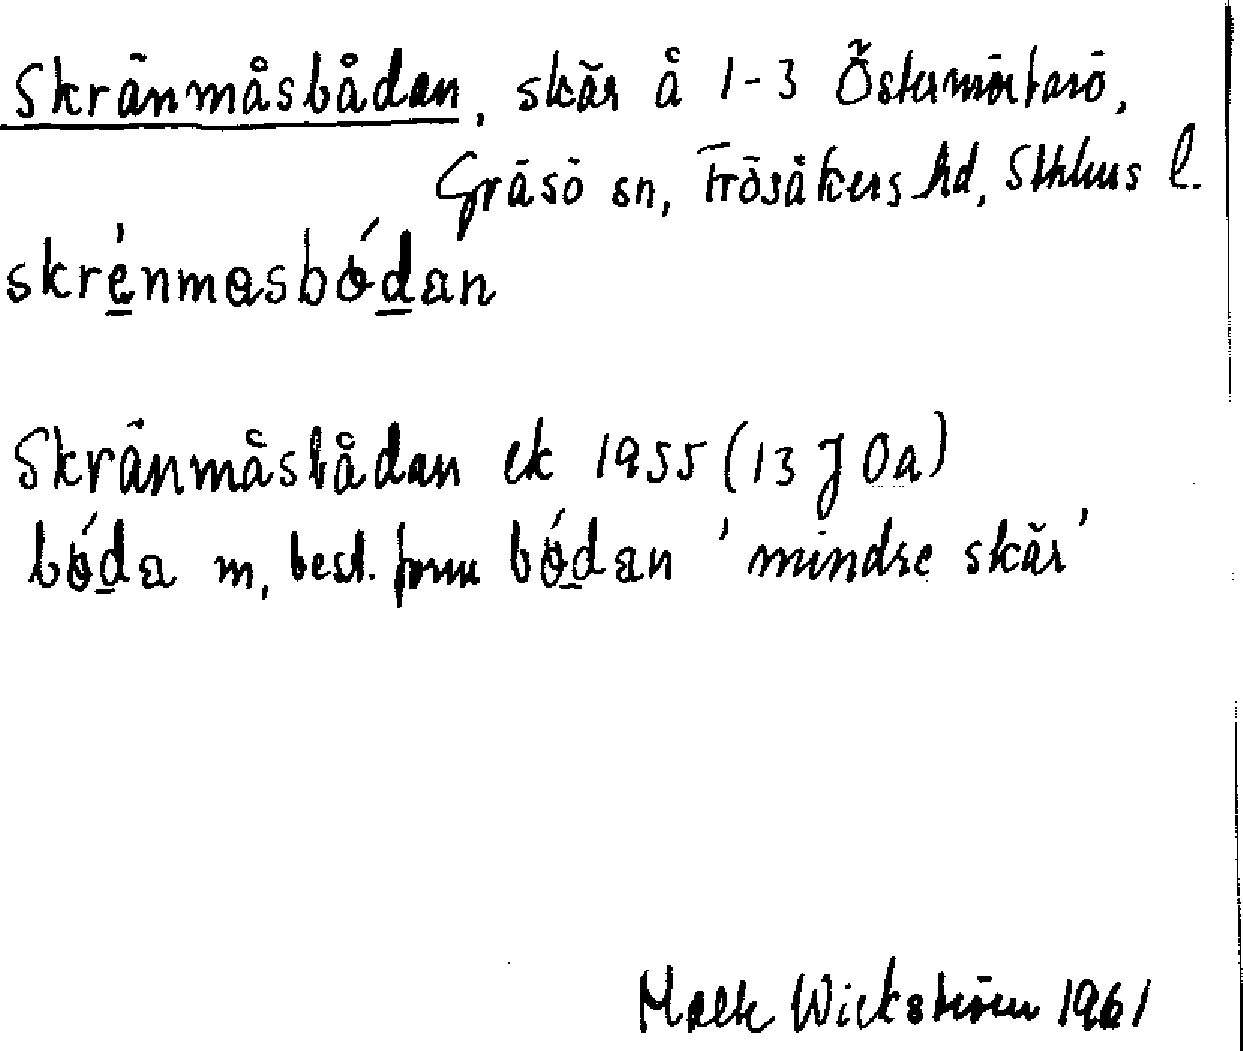 Skränmåsbådan, skär å 1-3 Östermörtarö,
Gräsö sn, Frösåkers hd, Sthlms l.
skrénmasbódan
Skränmåsbådan ek 1955 (13 J 0a)
bóda m, best. form bódan 'mindre skär'
Wickström 1961